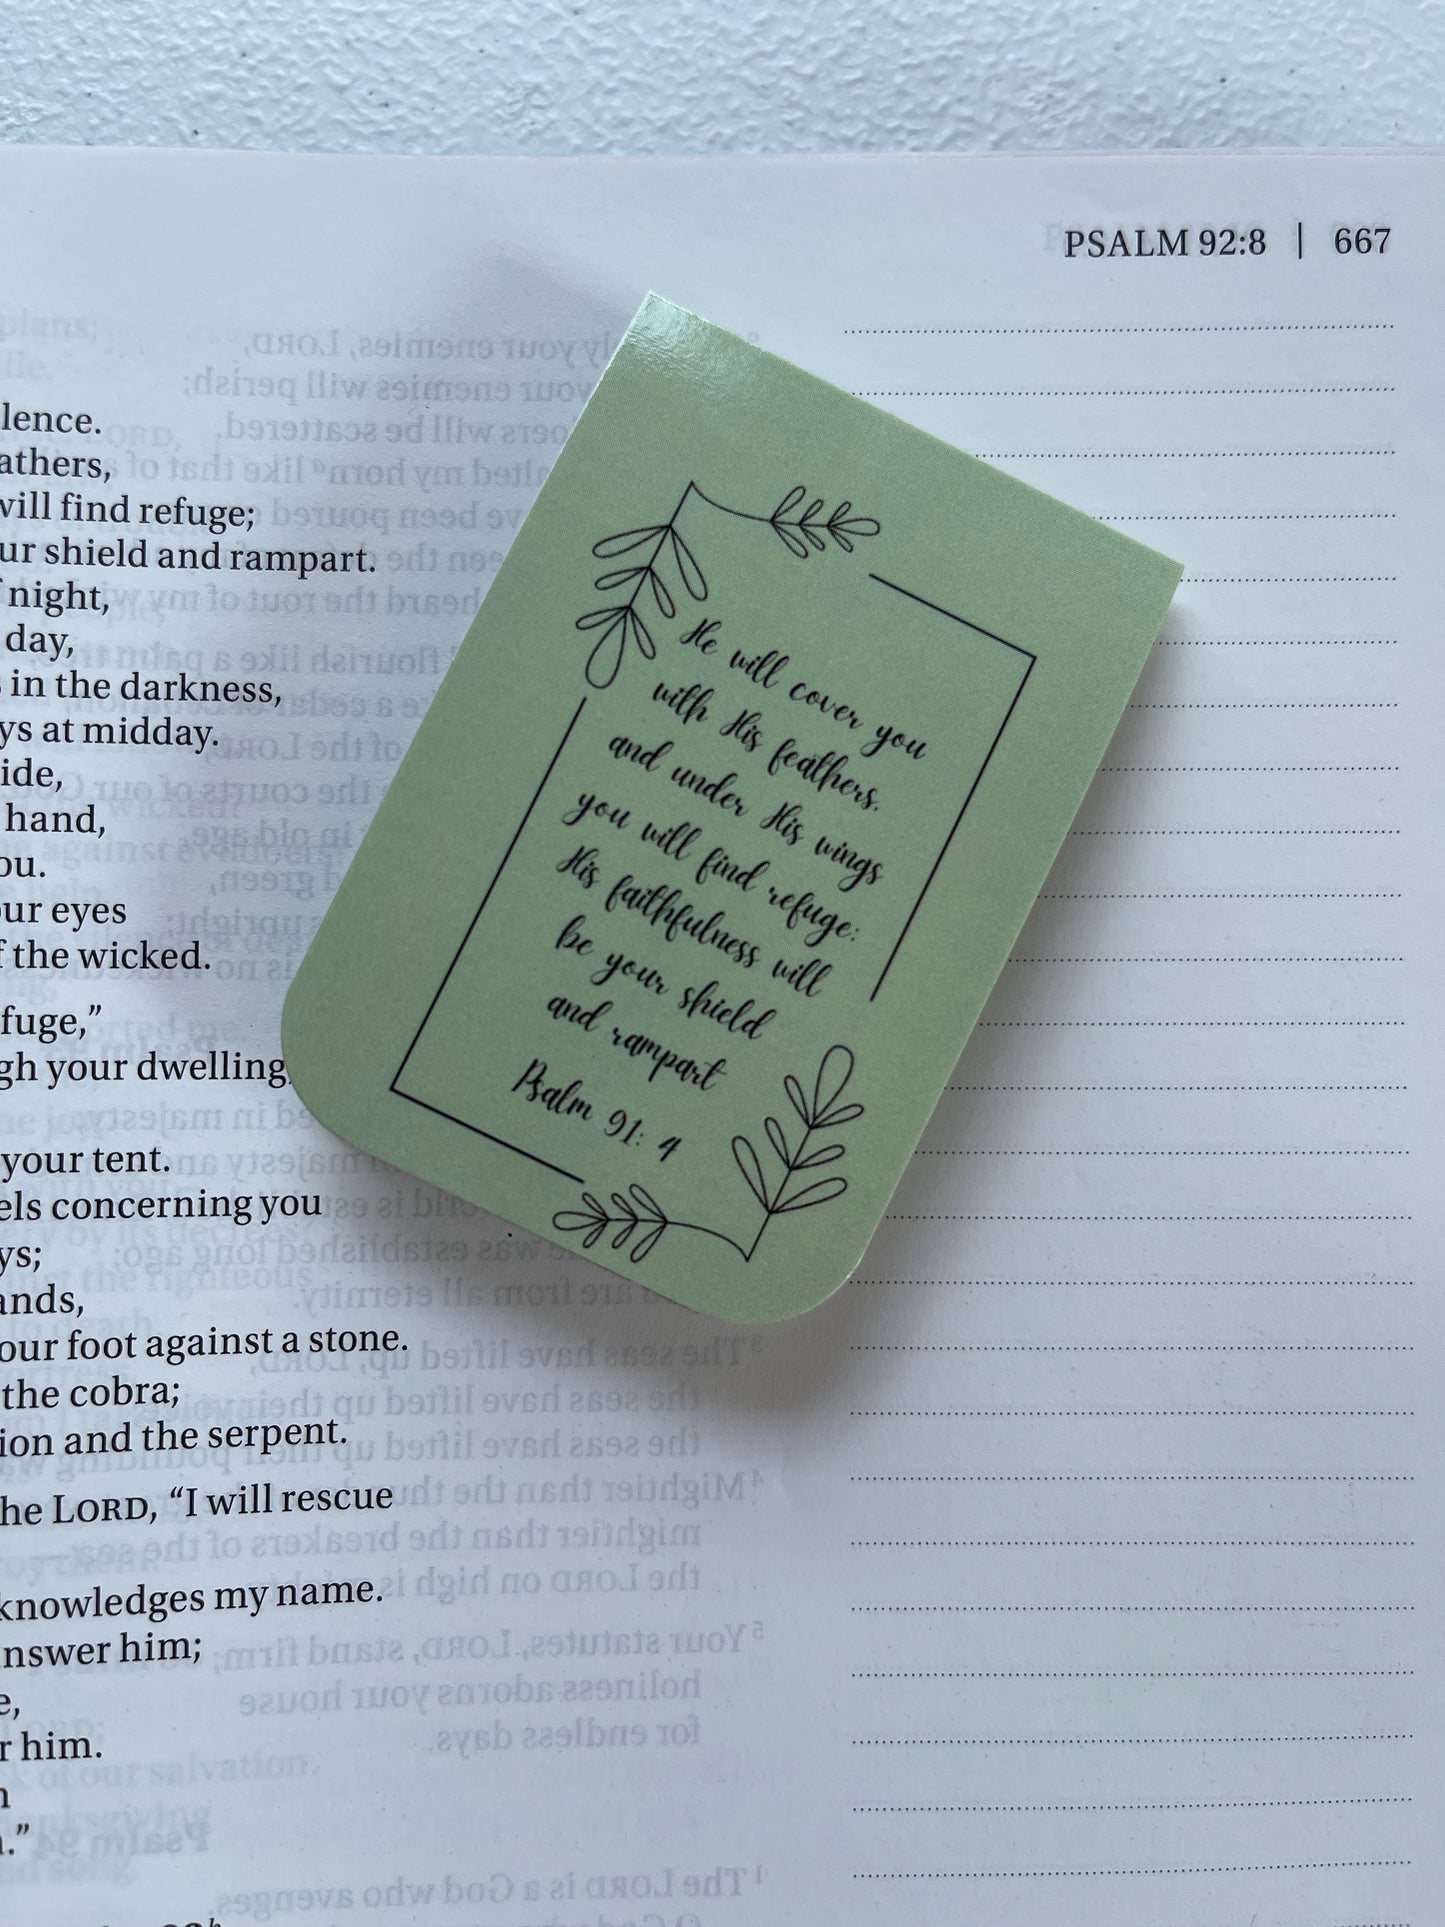 PSALM 92:8 | 667
lence.
athers,
will find refuge;
ur shield and rampart.
night,
day,
in the darkness,
ys at midday.
ide,
hand,
ou.
our eyes
f the wicked.
fuge,”
gh your dwelling,
your tent.
els concerning you
ys;
ands,
our foot against a stone.
the cobra;
ion and the serpent.
he LORD, “I will rescue
knowledges my name.
nswer him;
e,
r him.
He will cover you
with His feathers.
and under His wings
you will find refuge:
His faithfulness will
be your shield
and rampart
Psalm 91: 4